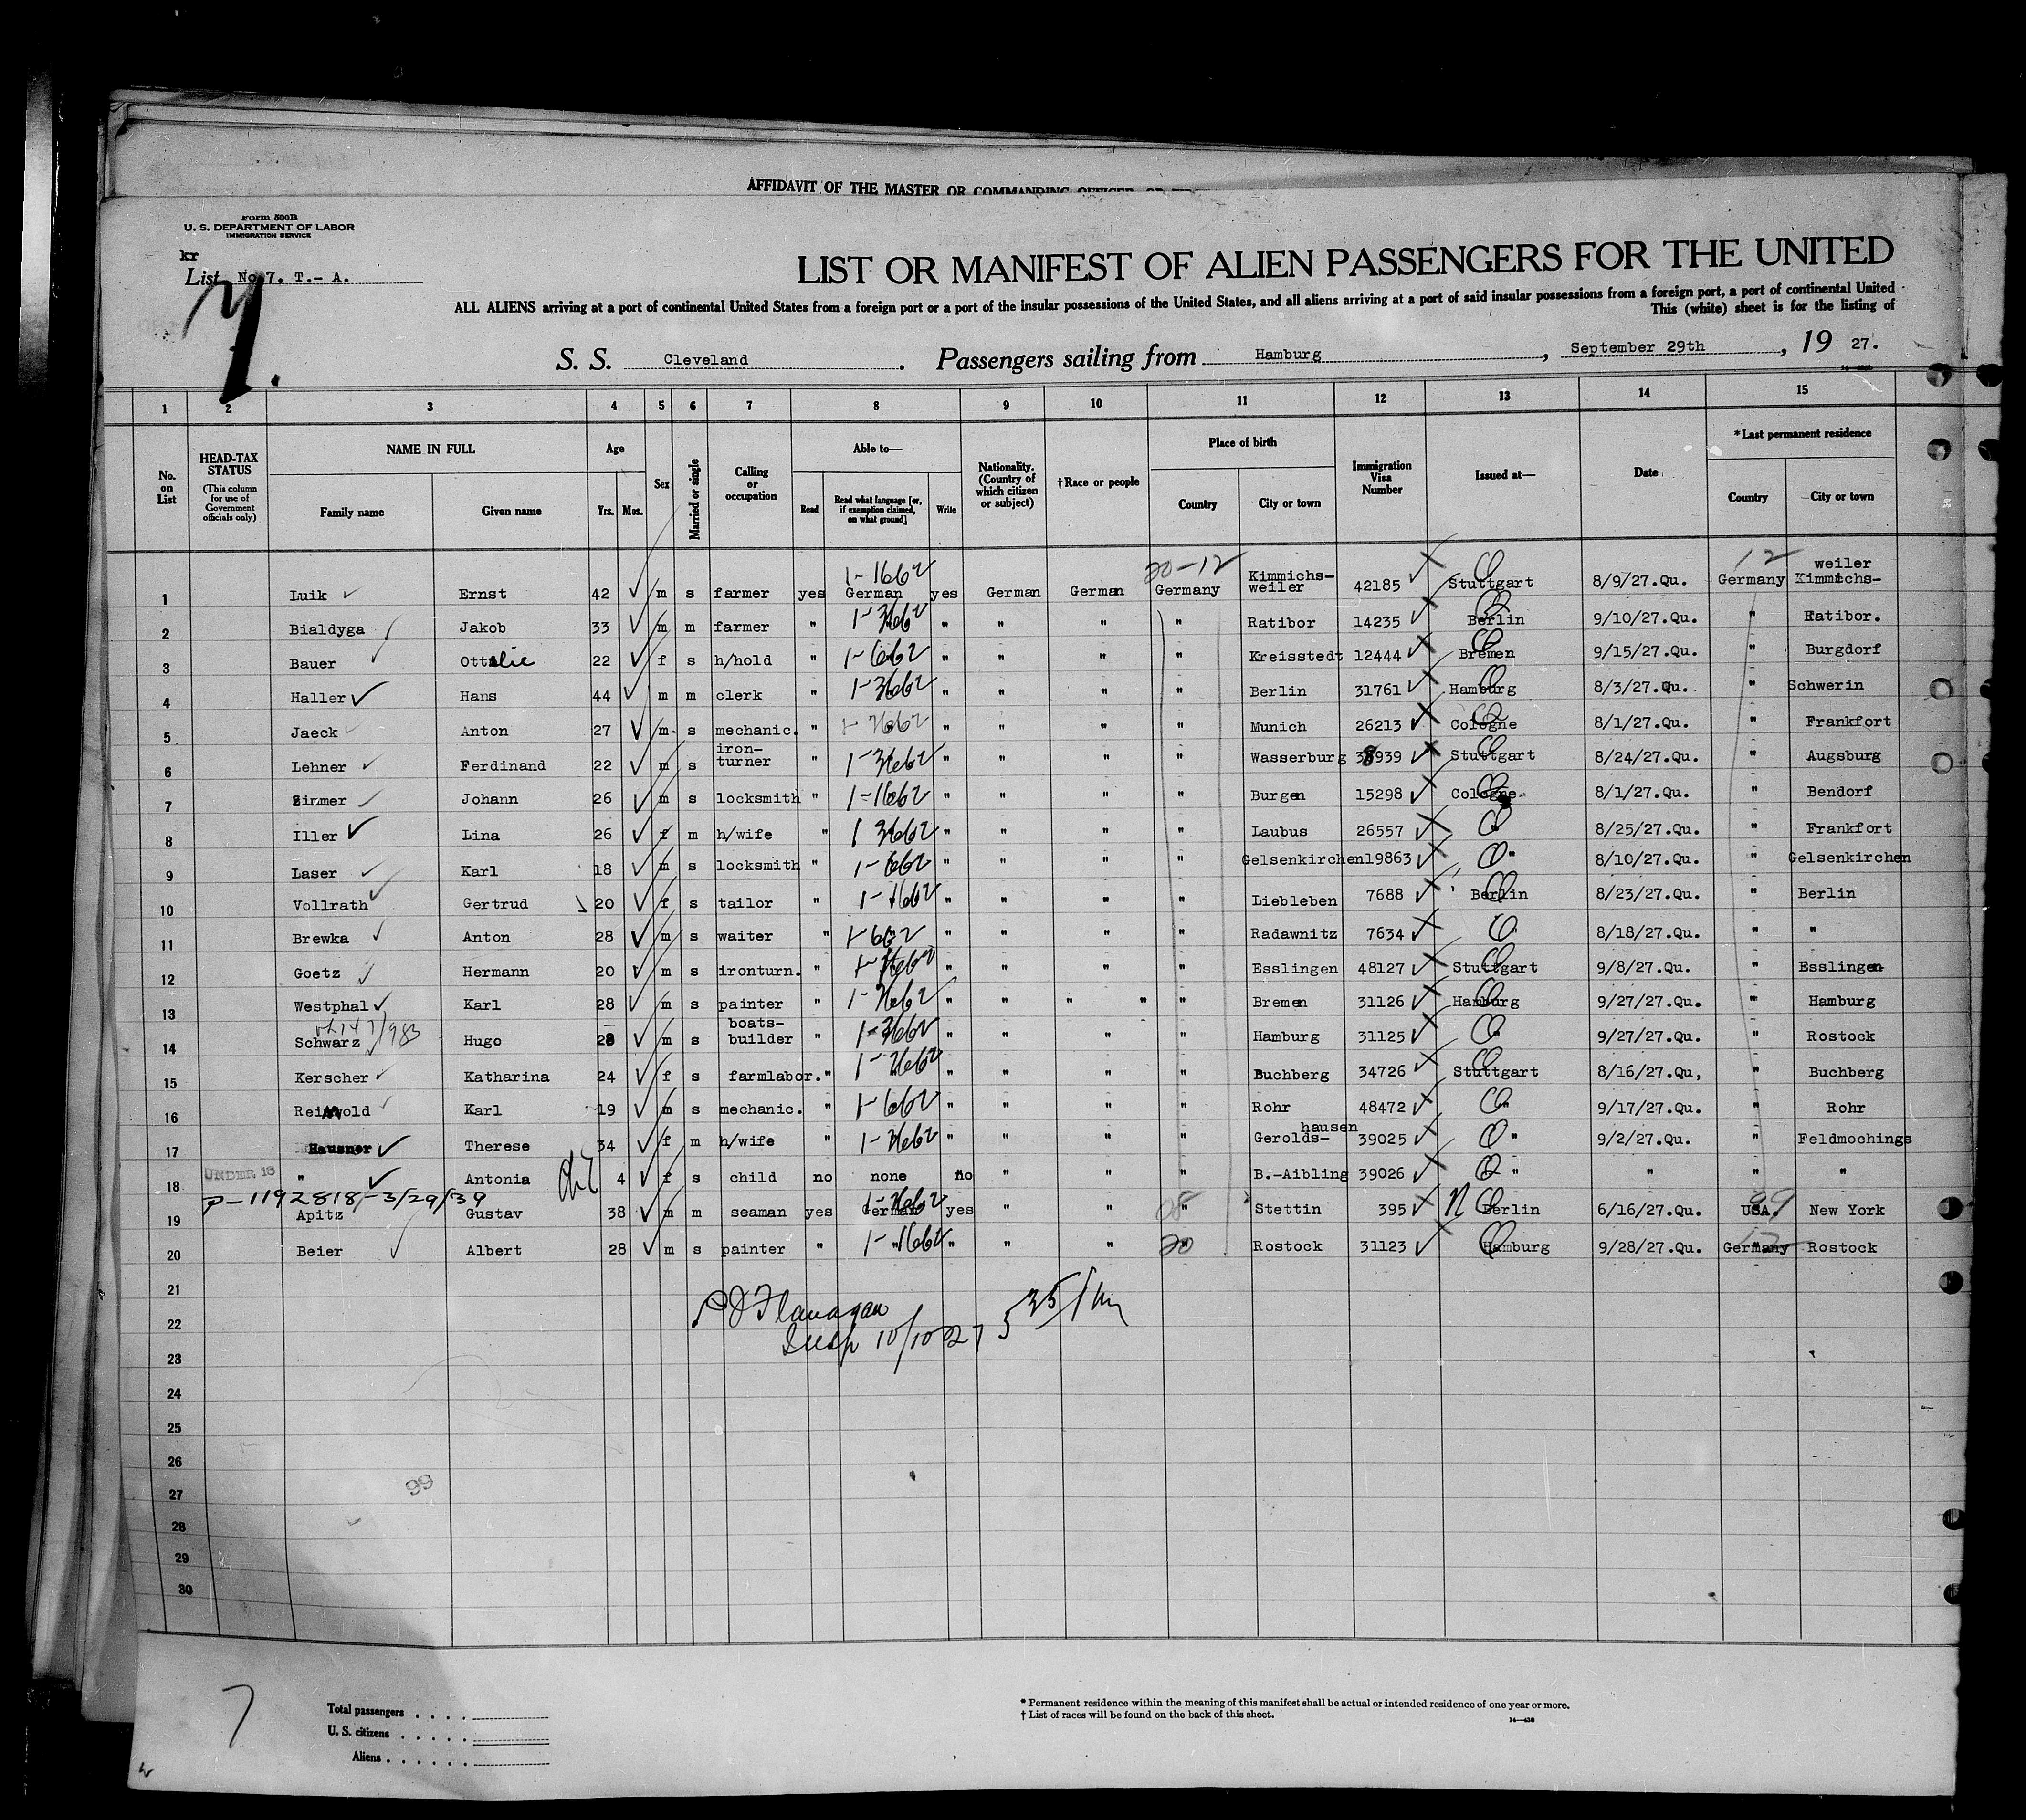 AFFIDAVIT OF THE MASTER OR COMMANDING OFFICER, OR
Form 500B
U. S. DEPARTMENT OF LABOR
IMMIGRATION SERVICE
kr
List No. 7. T.- A.
7.
LIST OR MANIFEST OF ALIEN PASSENGERS FOR THE UNITED
ALL ALIENS arriving at a port of continental United States from a foreign port or a port of the insular possessions of the United States, and all aliens arriving at a port of said insular possessions from a foreign port, a port of continental United
This (white) sheet is for the listing of
S. S. Cleveland. Passengers sailing from Hamburg, September 29th, 19 27.
1 2 3 4 5 6 7 8 9 10 11 12 13 14 15
No. on List HEAD-TAX STATUS (This column for use of Government officials only) NAME IN FULL Family name Given name Age Yrs. Mos. Sex Married or single Calling or occupation Able to— Read Read what language [or, if exemption claimed, on what ground] Write Nationality. (Country of which citizen or subject) †Race or people Place of birth Country City or town Immigration Visa Number Issued at— Date *Last permanent residence Country City or town
1-1662 20-12 12
1 Luik Ernst 42 m s farmer yes German yes German German Germany Kimmichs-weiler 42185 Stuttgart 8/9/27.Qu. Germany Kimmichs-weiler
2 Bialdyga Jakob 33 m m farmer " 1-3662 " " " " Ratibor 14235 Berlin 9/10/27.Qu. " Ratibor.
3 Bauer Ottilie 22 f s h/hold " 1-662 " " " " Kreisstedt 12444 Bremen 9/15/27.Qu. " Burgdorf
4 Haller Hans 44 m m clerk " 1-3662 " " " " Berlin 31761 Hamburg 8/3/27.Qu. " Schwerin
5 Jaeck Anton 27 m. s mechanic. " " " " " Munich 26213 Cologne 8/1/27.Qu. " Frankfort
6 Lehner Ferdinand 22 m s iron-turner " 1-3662 " " " " Wasserburg 38939 Stuttgart 8/24/27.Qu. " Augsburg
7 Zirmer Johann 26 m s locksmith " 1-1662 " " " " Burgen 15298 Cologne. 8/1/27.Qu. " Bendorf
8 Iller Lina 26 f m h/wife " 1 3662 " " " " Laubus 26557 " 8/25/27.Qu. " Frankfort
9 Laser Karl 18 m s locksmith " 1-662 " " " " Gelsenkirchen 19863 " 8/10/27.Qu. " Gelsenkirchen
10 Vollrath Gertrud 20 f s tailor " 1-1662 " " " " Liebleben 7688 Berlin 8/23/27.Qu. " Berlin
11 Brewka Anton 28 m s waiter " 1-662 " " " " Radawnitz 7634 " 8/18/27.Qu. " "
12 Goetz Hermann 20 m s ironturn. " " " " " Esslingen 48127 Stuttgart 9/8/27.Qu. " Esslingen
13 Westphal Karl 28 m s painter " 1-3662 " " " " " Bremen 31126 Hamburg 9/27/27.Qu. " Hamburg
14 Schwarz Hugo 28 m s boats-builder " 1-3662 " " " " Hamburg 31125 " 9/27/27.Qu. " Rostock
15 Kerscher Katharina 24 f s farmlabor. " 1-3662 " " " " Buchberg 34726 Stuttgart 8/16/27.Qu, " Buchberg
16 Reinwold Karl 19 m s mechanic. " 1-662 " " " " Rohr 48472 " 9/17/27.Qu. " Rohr
17 Hausner Therese 34 f m h/wife " 1-3662 " " " " Gerolds-hausen 39025 " 9/2/27.Qu. " Feldmochings
18 UNDER 16 " Antonia 4 f s child no none no " " " B.-Aibling 39026 " " " "
P-1192818-3/29/39
19 Apitz Gustav 38 m m seaman yes German 1-3662 yes " " 08 " Stettin 395 N Berlin 6/16/27.Qu. USA. 99 New York
20 Beier Albert 28 m s painter " 1-1662 " " " 20 " Rostock 31123 Hamburg 9/28/27.Qu. Germany 12 Rostock
21
22
23
24
25
26
27
28
29
30
P J Flanagan
Insp 10/10 27
99
7
Total passengers . . . .
U. S. citizens . . . . .
Aliens . . . . . .
* Permanent residence within the meaning of this manifest shall be actual or intended residence of one year or more.
† List of races will be found on the back of this sheet.
14—438